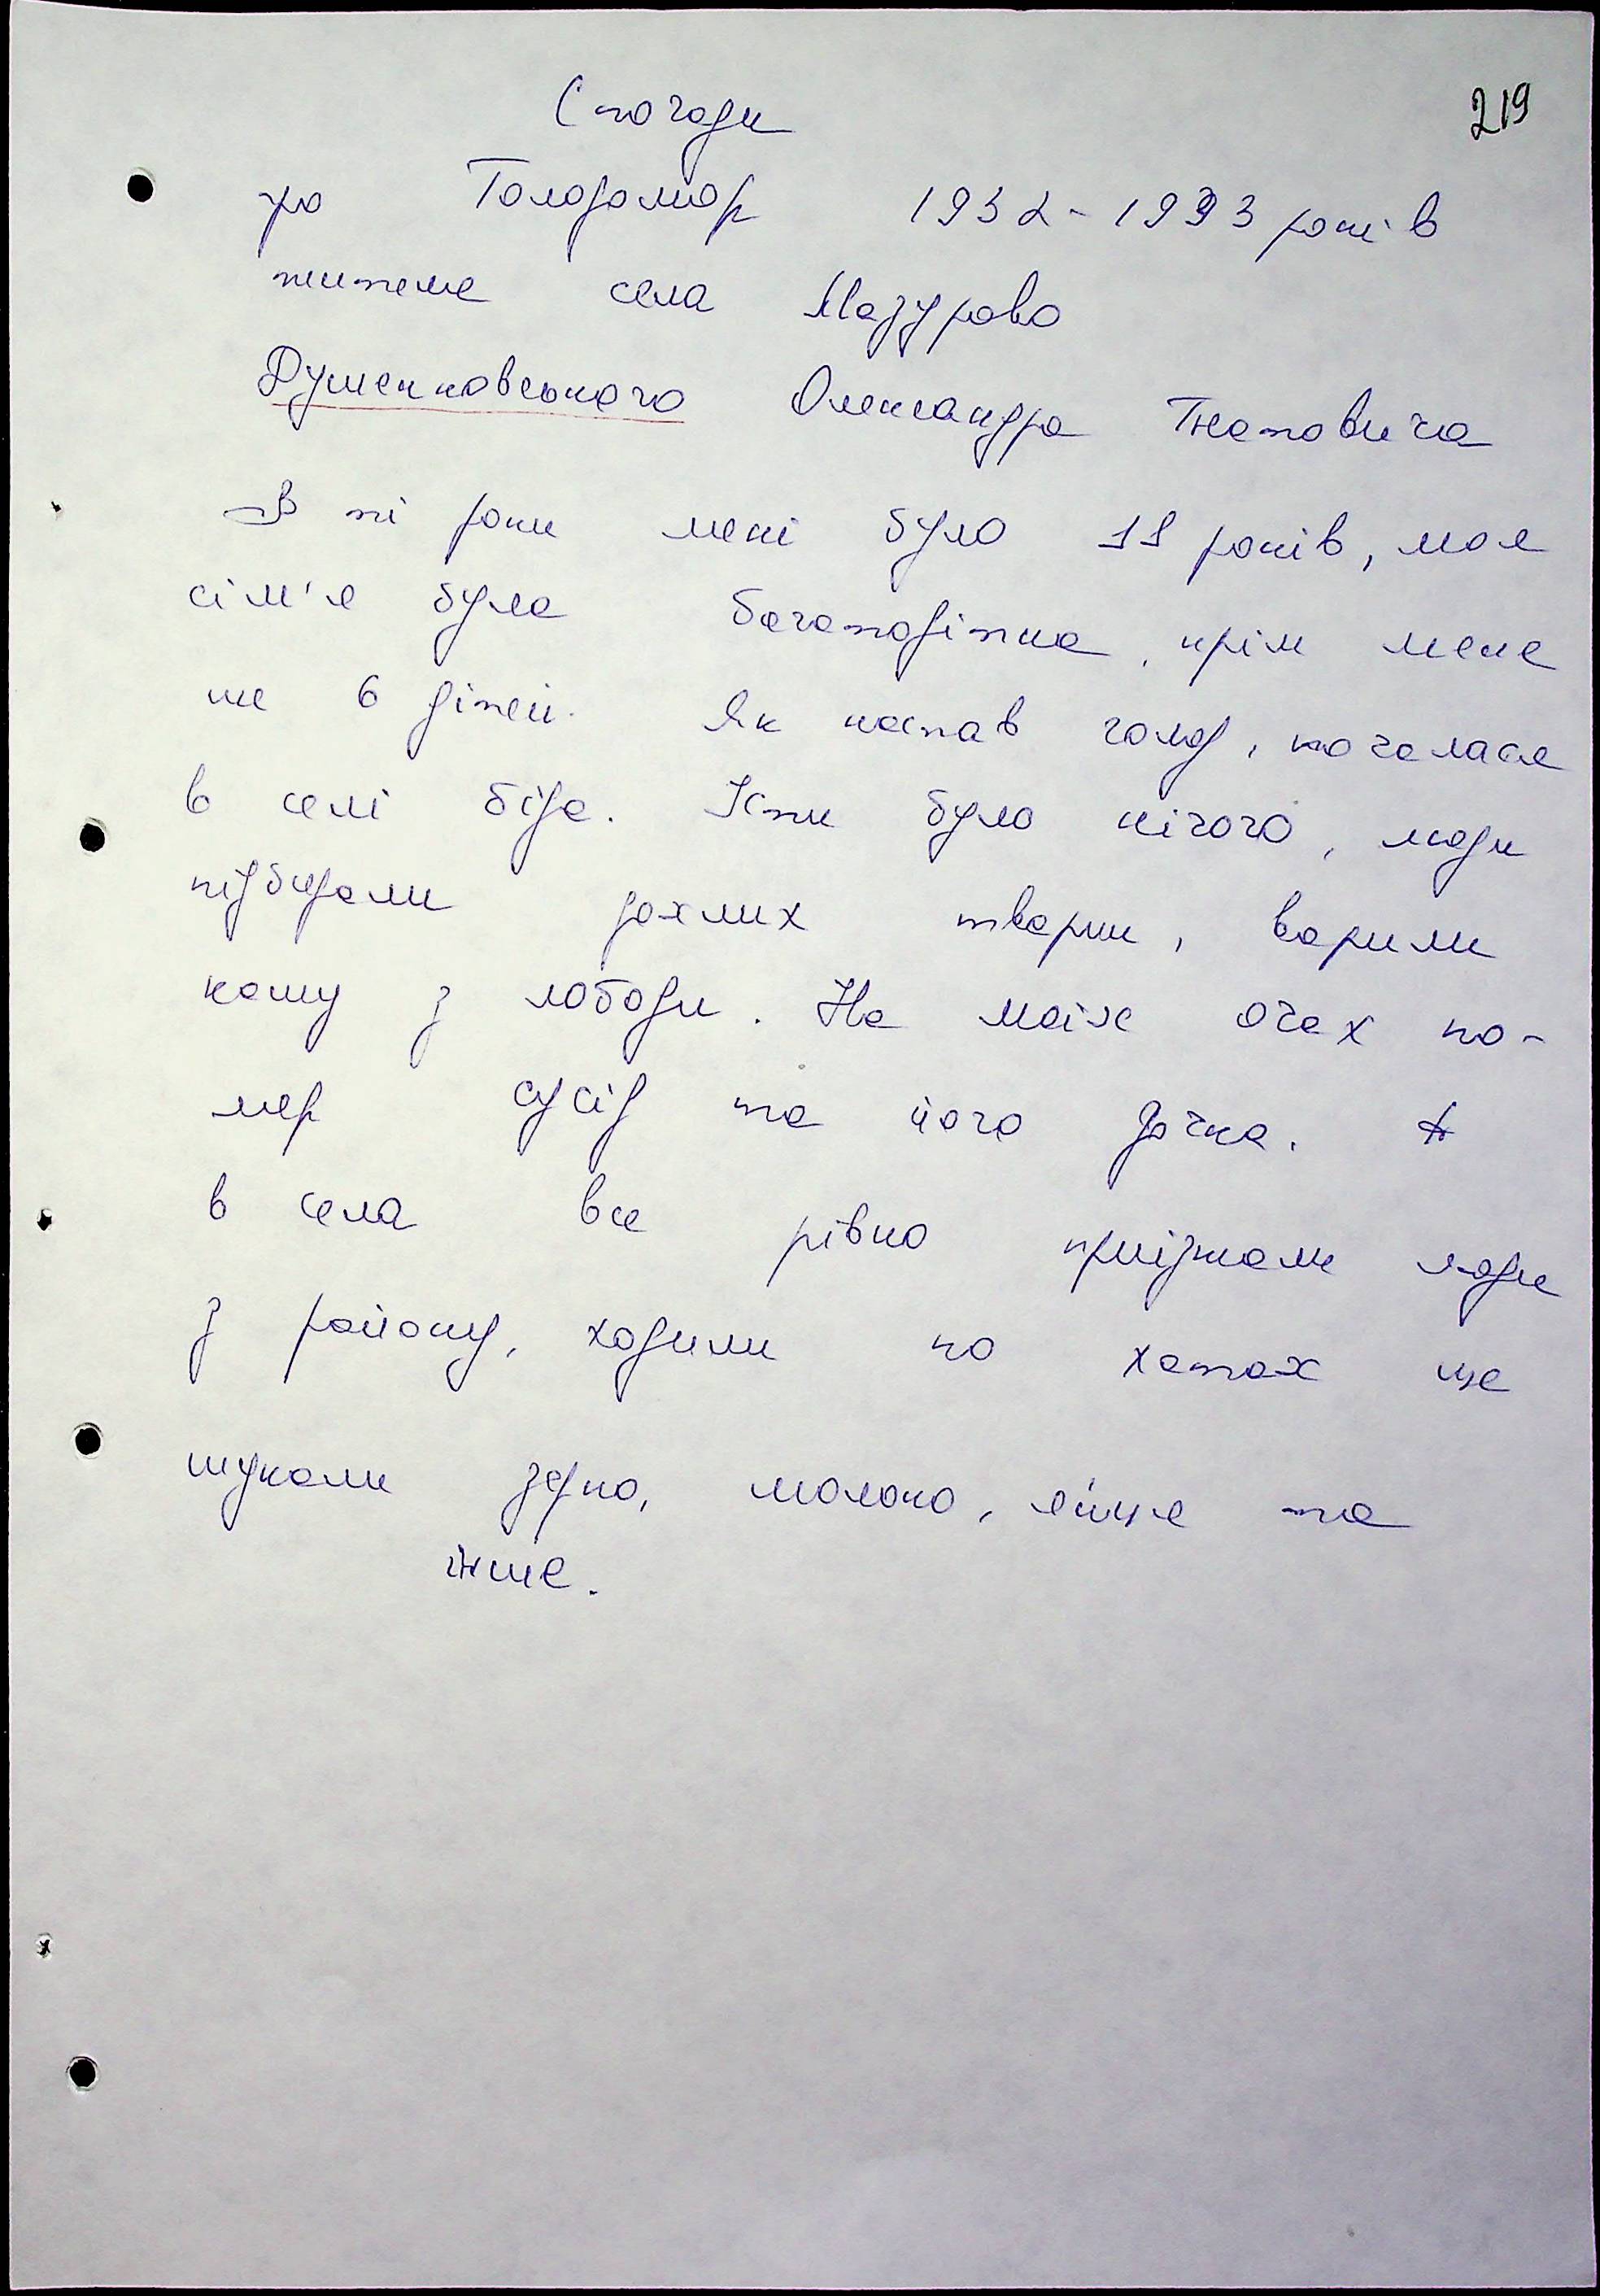 Спогади
219
про Голодомор 1932-1933 років
жителя села Мазурово
Душенковського Олександра Гнатовича
В ті роки мені було 11 років, моя
сім'я була багатодітна, крім мене
ще 6 дітей. Як настав голод, почалася
в селі біда. Їсти було нічого, люди
підбирали дохлих тварин, варили
кашу з лободи. На моїх очах по-
мер сусід та його дочка.
в села все рівно приїжжали люди
з району, ходили по хатах ще
шукали зерно, молоко, яйця та
інше.